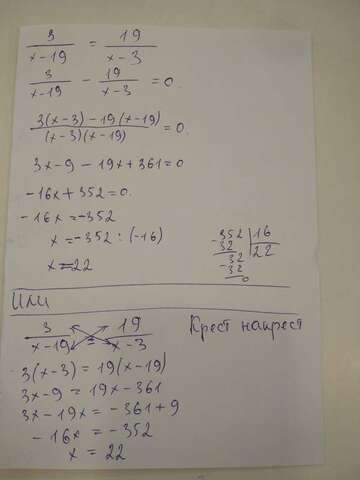 3/(x-19) = 19/(x-3)
3/(x-19) - 19/(x-3) = 0.
(3(x-3) - 19(x-19))/((x-3)(x-19)) = 0.
3x-9 - 19x+361=0
-16x+352=0.
-16x=-352
x=-352:(-16)
x=22
352 | 16
-32 | 22
32
-32
0
Или
3/(x-19) = 19/(x-3) Крест накрест
3(x-3)=19(x-19)
3x-9=19x-361
3x-19x=-361+9
-16x=-352
x=22